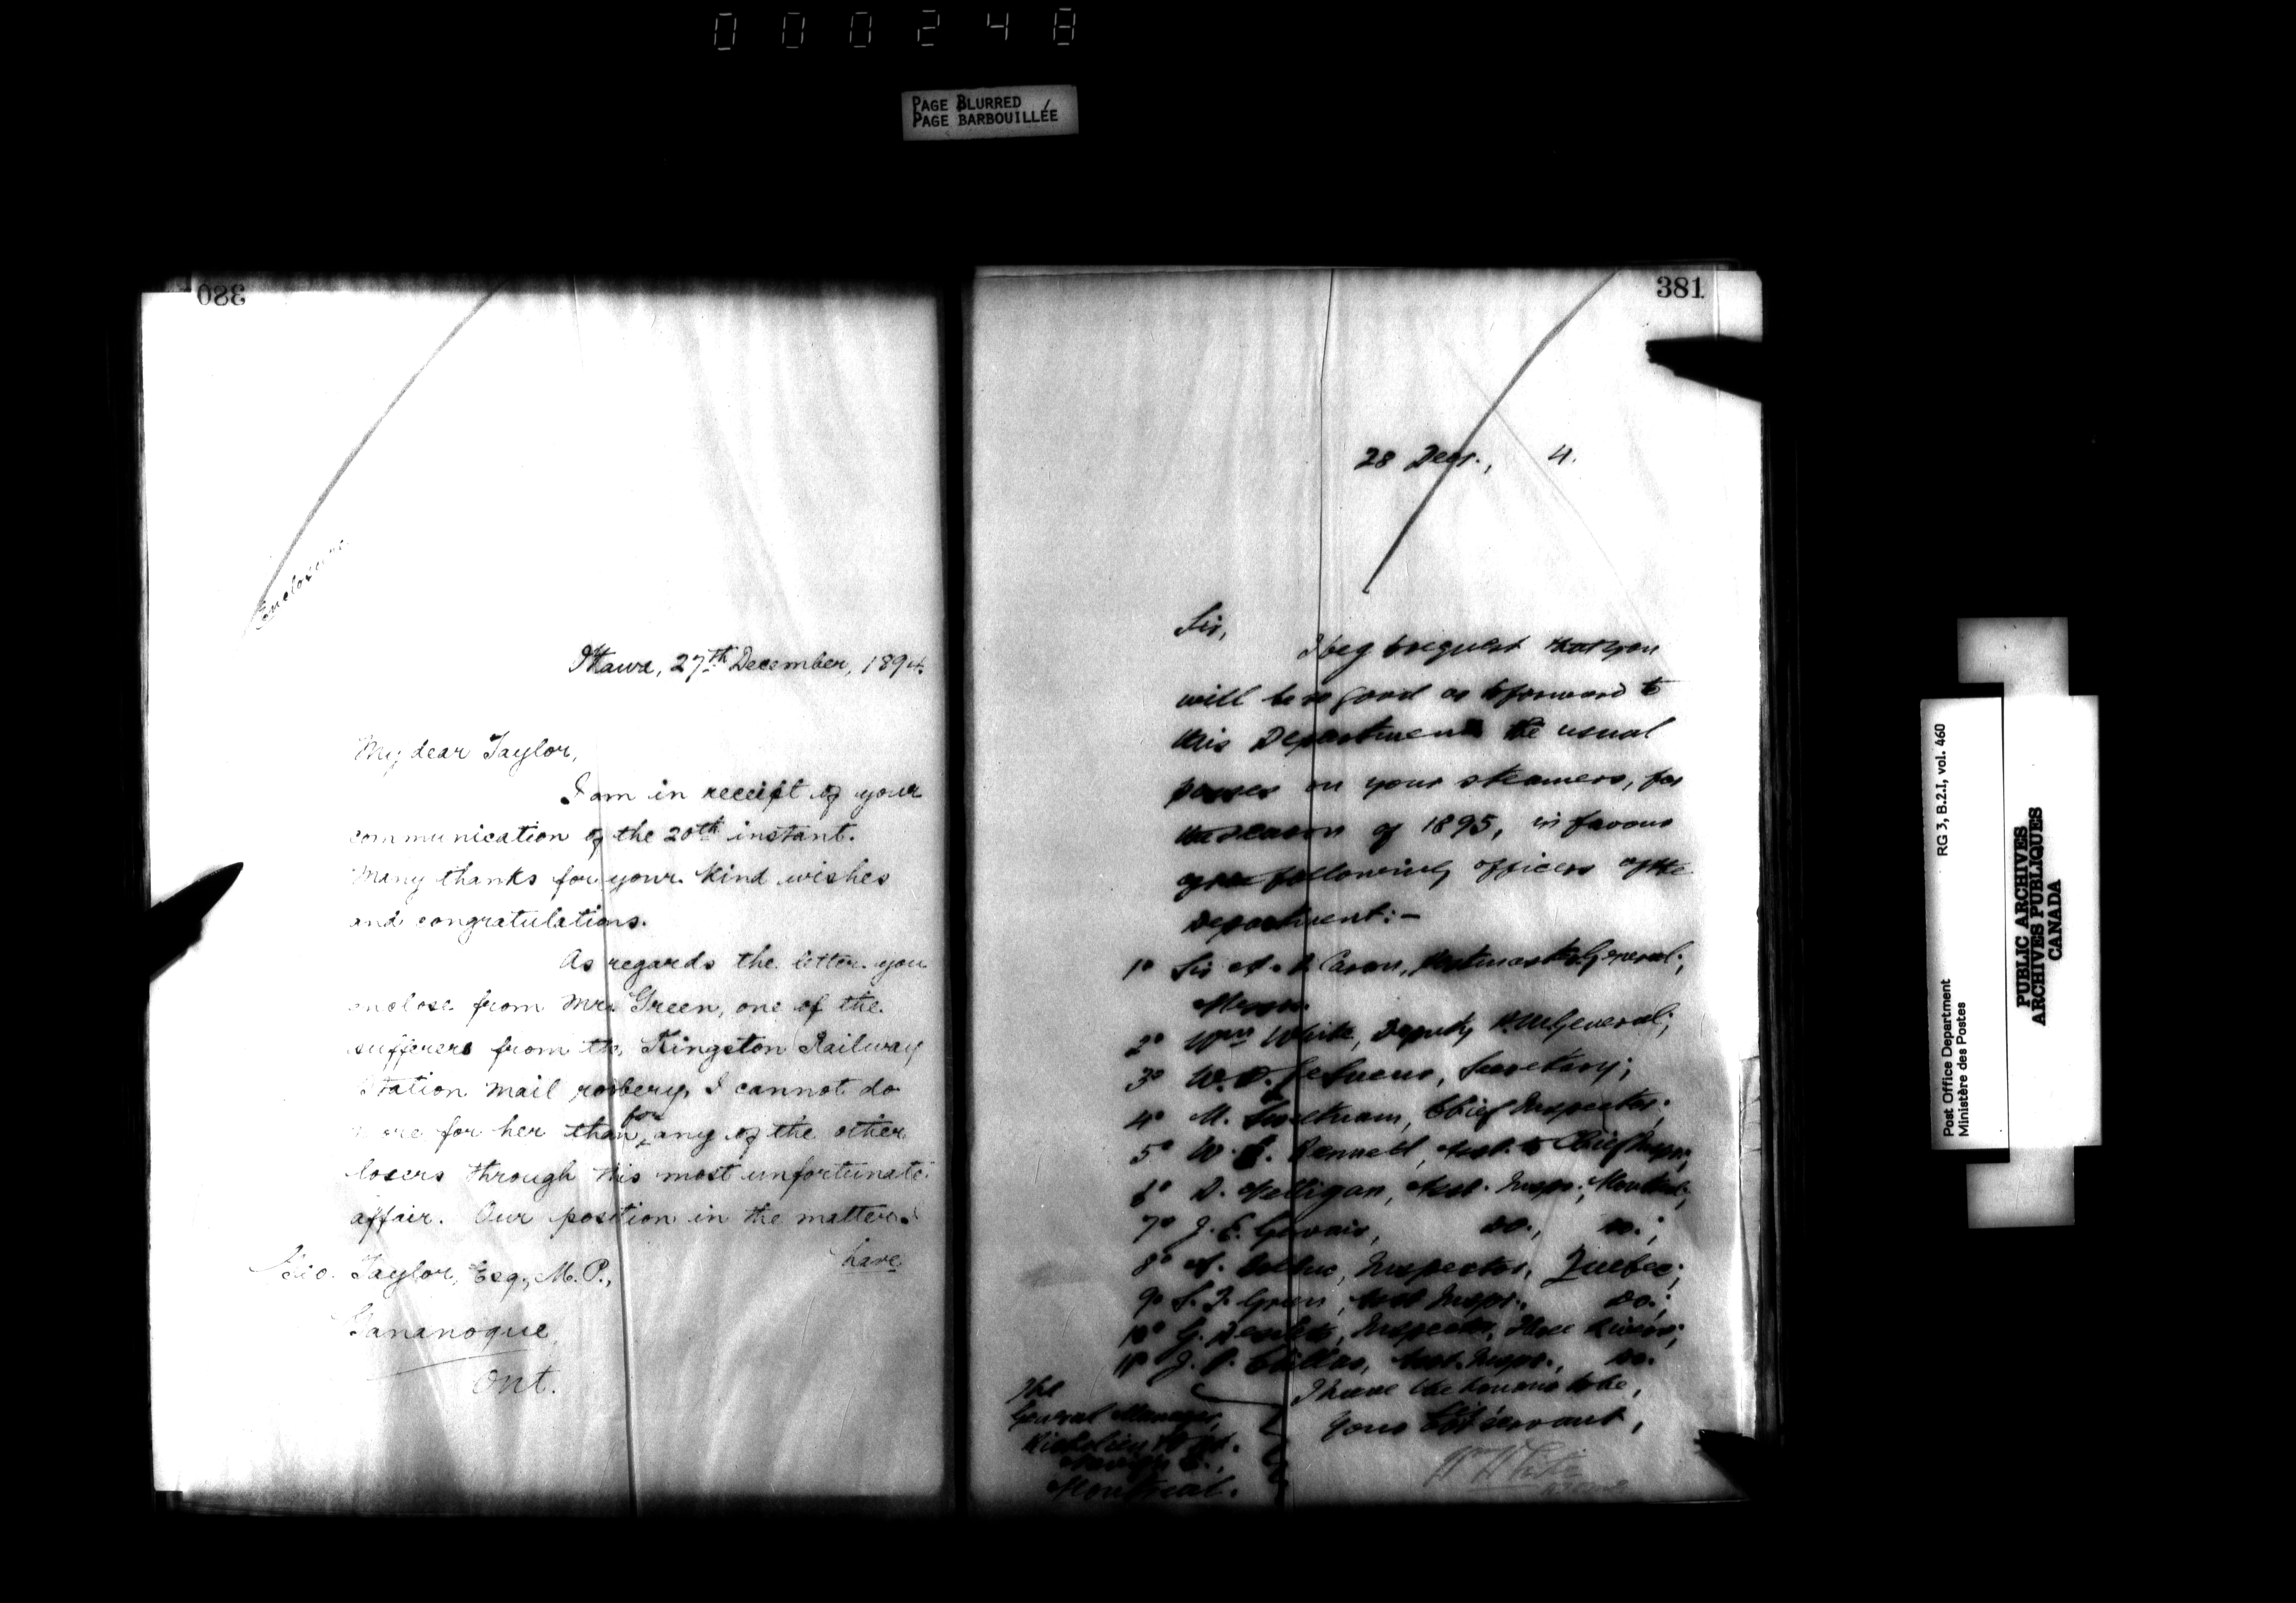 000248
PAGE BLURRED
PAGE BARBOUILLÉE
380
Enclosure
Ottawa, 27th December, 1894.
My dear Taylor,
I am in receipt of your
communication of the 20th instant.
Many thanks for your kind wishes
and congratulations.
As regards the letter you
enclose from Mrs Green, one of the
sufferers from the Kingston Railway
Station mail robbery, I cannot do
more for her than for any of the other
losers through this most unfortunate
affair. Our position in the matter
have
Geo. Taylor, Esq., M.P.,
Gananoque,
Ont.
381
28 Decr., 4.
Sir,
I beg to request that you
will be so good as to forward to
this Department the usual
passes on your steamers, for
the season of 1895, in favour
of the following officers of the
Department:-
1º Sir A. P. Caron, Postmaster General;
Messrs.
2º Wm White, Deputy P.M. General;
3º W. D. LeSueur, Secretary;
4º M. Sweetnam, Chief Inspector;
5º W. Rennell, Asst. to Chief Inspr;
6º D. Asst. Inspr., Montreal;
7º J. E. Gervais, do., do.;
8º A. Bolduc, Inspector, Quebec;
9º S. T. Green, Asst Inspr., do.;
10º G. Desilets, Inspector, Three Rivers;
11º J. P. Asst. Inspr., do.
I have the honour to be,
Sir,
Your obt servant,
Wm White
The
General Manager,
Richelieu & Ont.
Navign Co.,
Montreal.
Post Office Department
Ministère des Postes
RG 3, B.2.I, vol. 460
PUBLIC ARCHIVES
ARCHIVES PUBLIQUES
CANADA